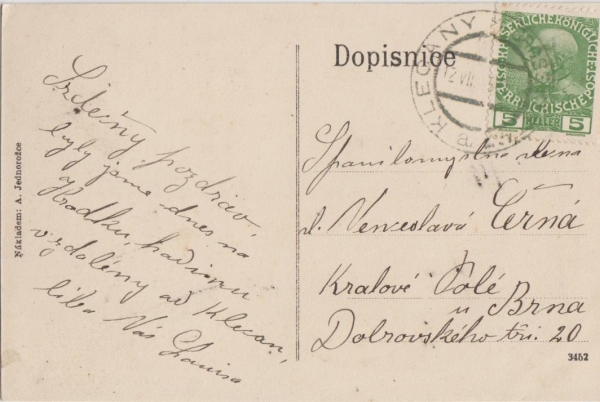 Dopisnice
KLECANY
12 VII
KAISERLICHE KÖNIGLICHE
ÖSTERREICHISCHE POST
5 HELLER 5
Srdečný pozdrav,
byly jsme dnes na
Hradku, hodinu
vzdálený od Klecan,
líbá Vás
Slečna
sl. Venceslava Černá
Kralové Polé
u Brna
Dobrovského tři. 20
Nákladem: A. Jednorožce
3452